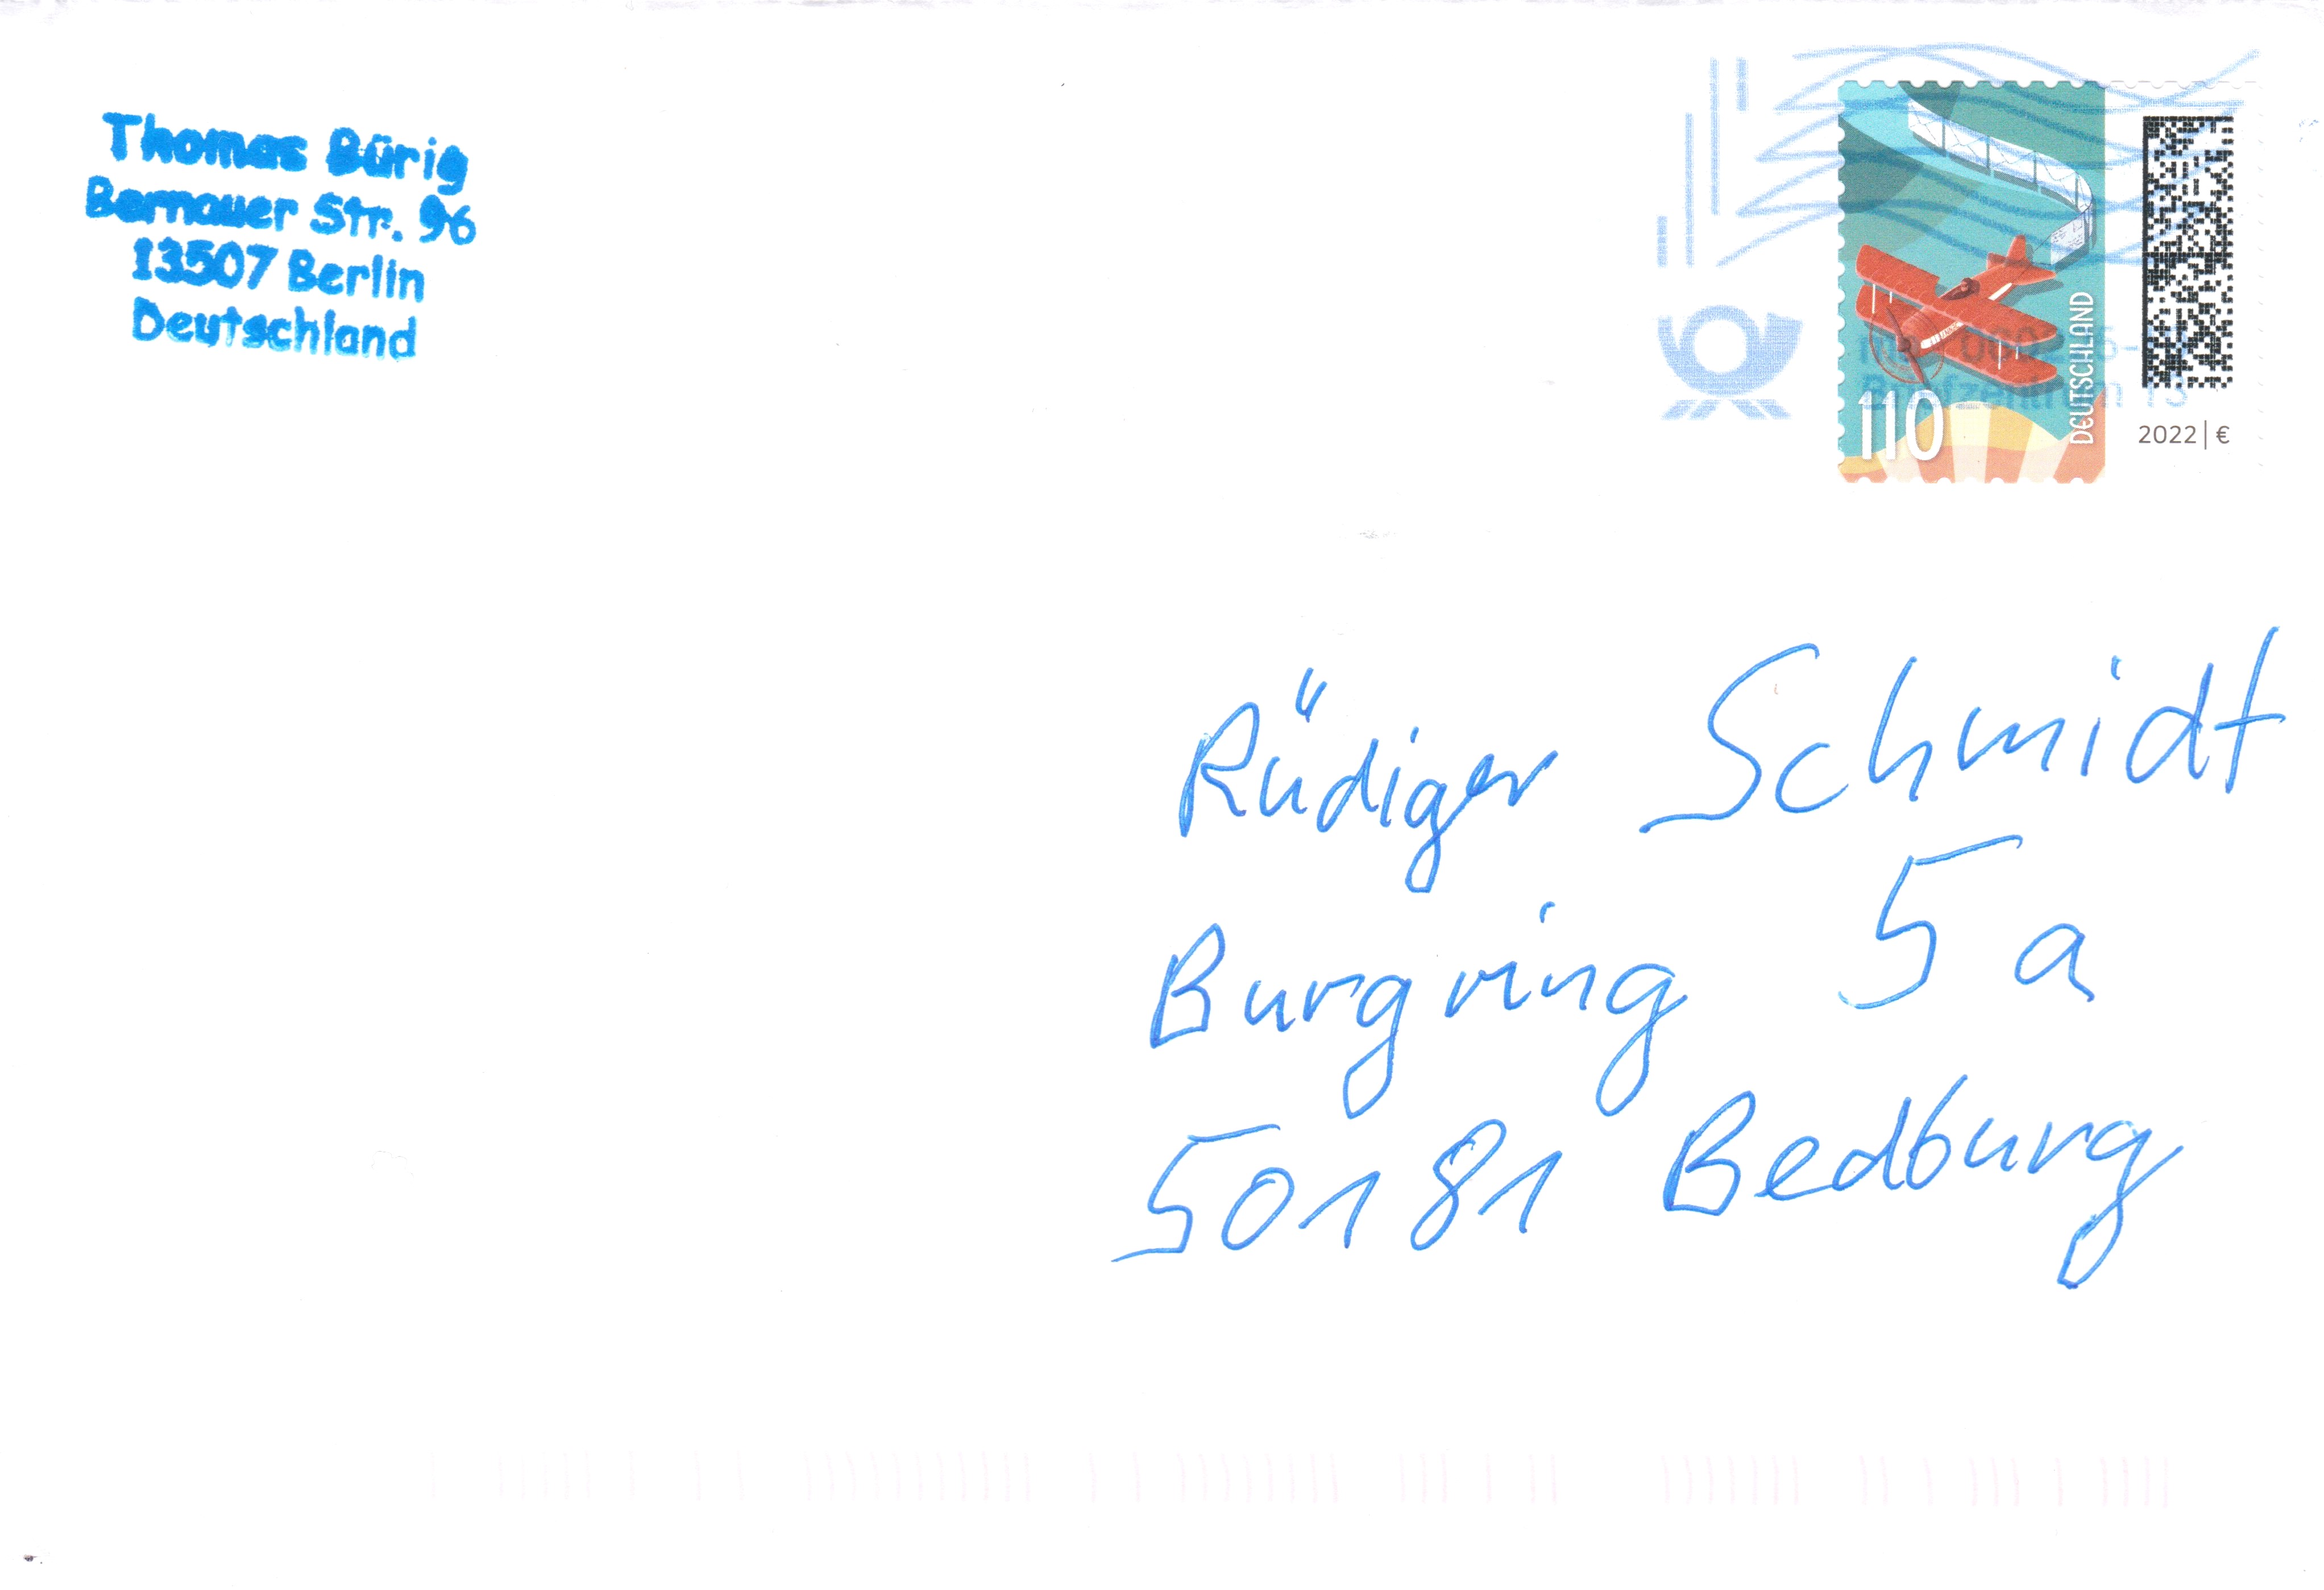 Thomas Bürig
Bernauer Str. 96
13507 Berlin
Deutschland
DEUTSCHLAND
110
2022 | €
Briefzentrum 13
Rüdiger Schmidt
Burgring 5 a
50181 Bedburg